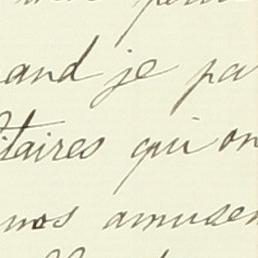 and je pa
itaires qui on
nos amusem